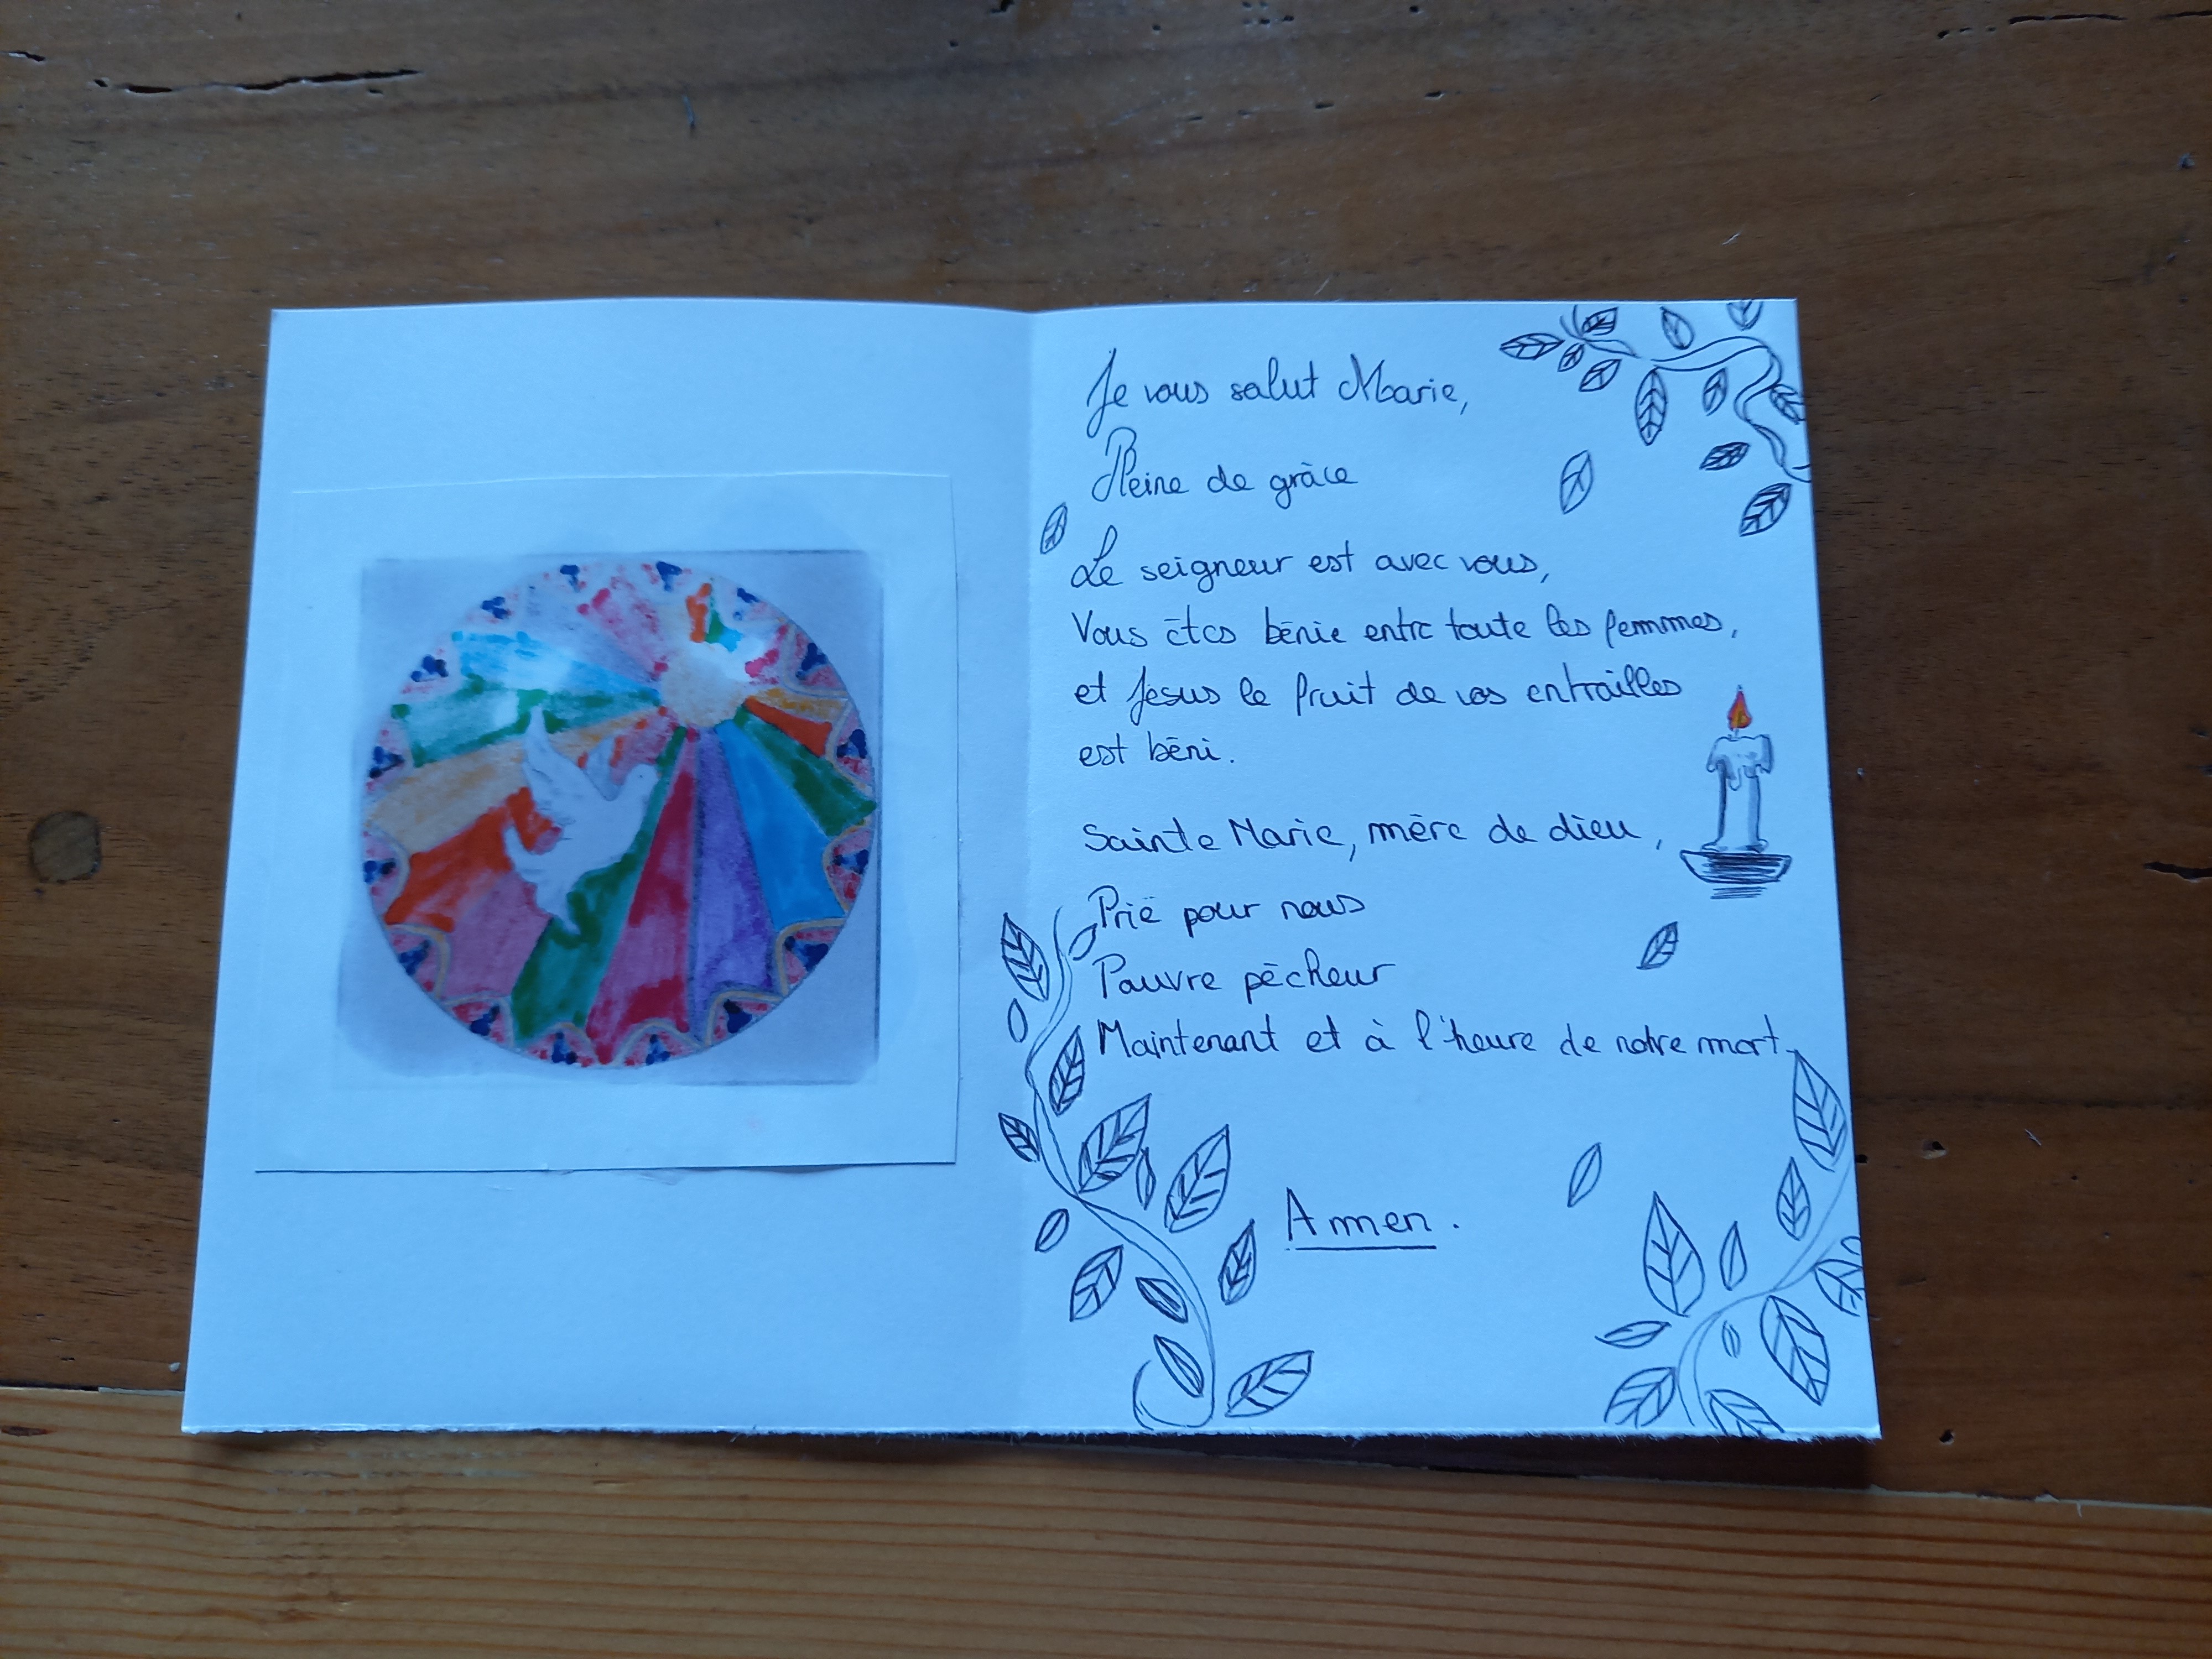 Je vous salut Marie,
Pleine de gràce
Le seigneur est avec vous,
Vous êtes bénie entre toute les femmes,
et Jésus le fruit de vos entrailles
est béni.
Sainte Marie, mère de dieu,
Prié pour nous
Pauvre pécheur
Maintenant et à l'heure de notre mort.
Amen.